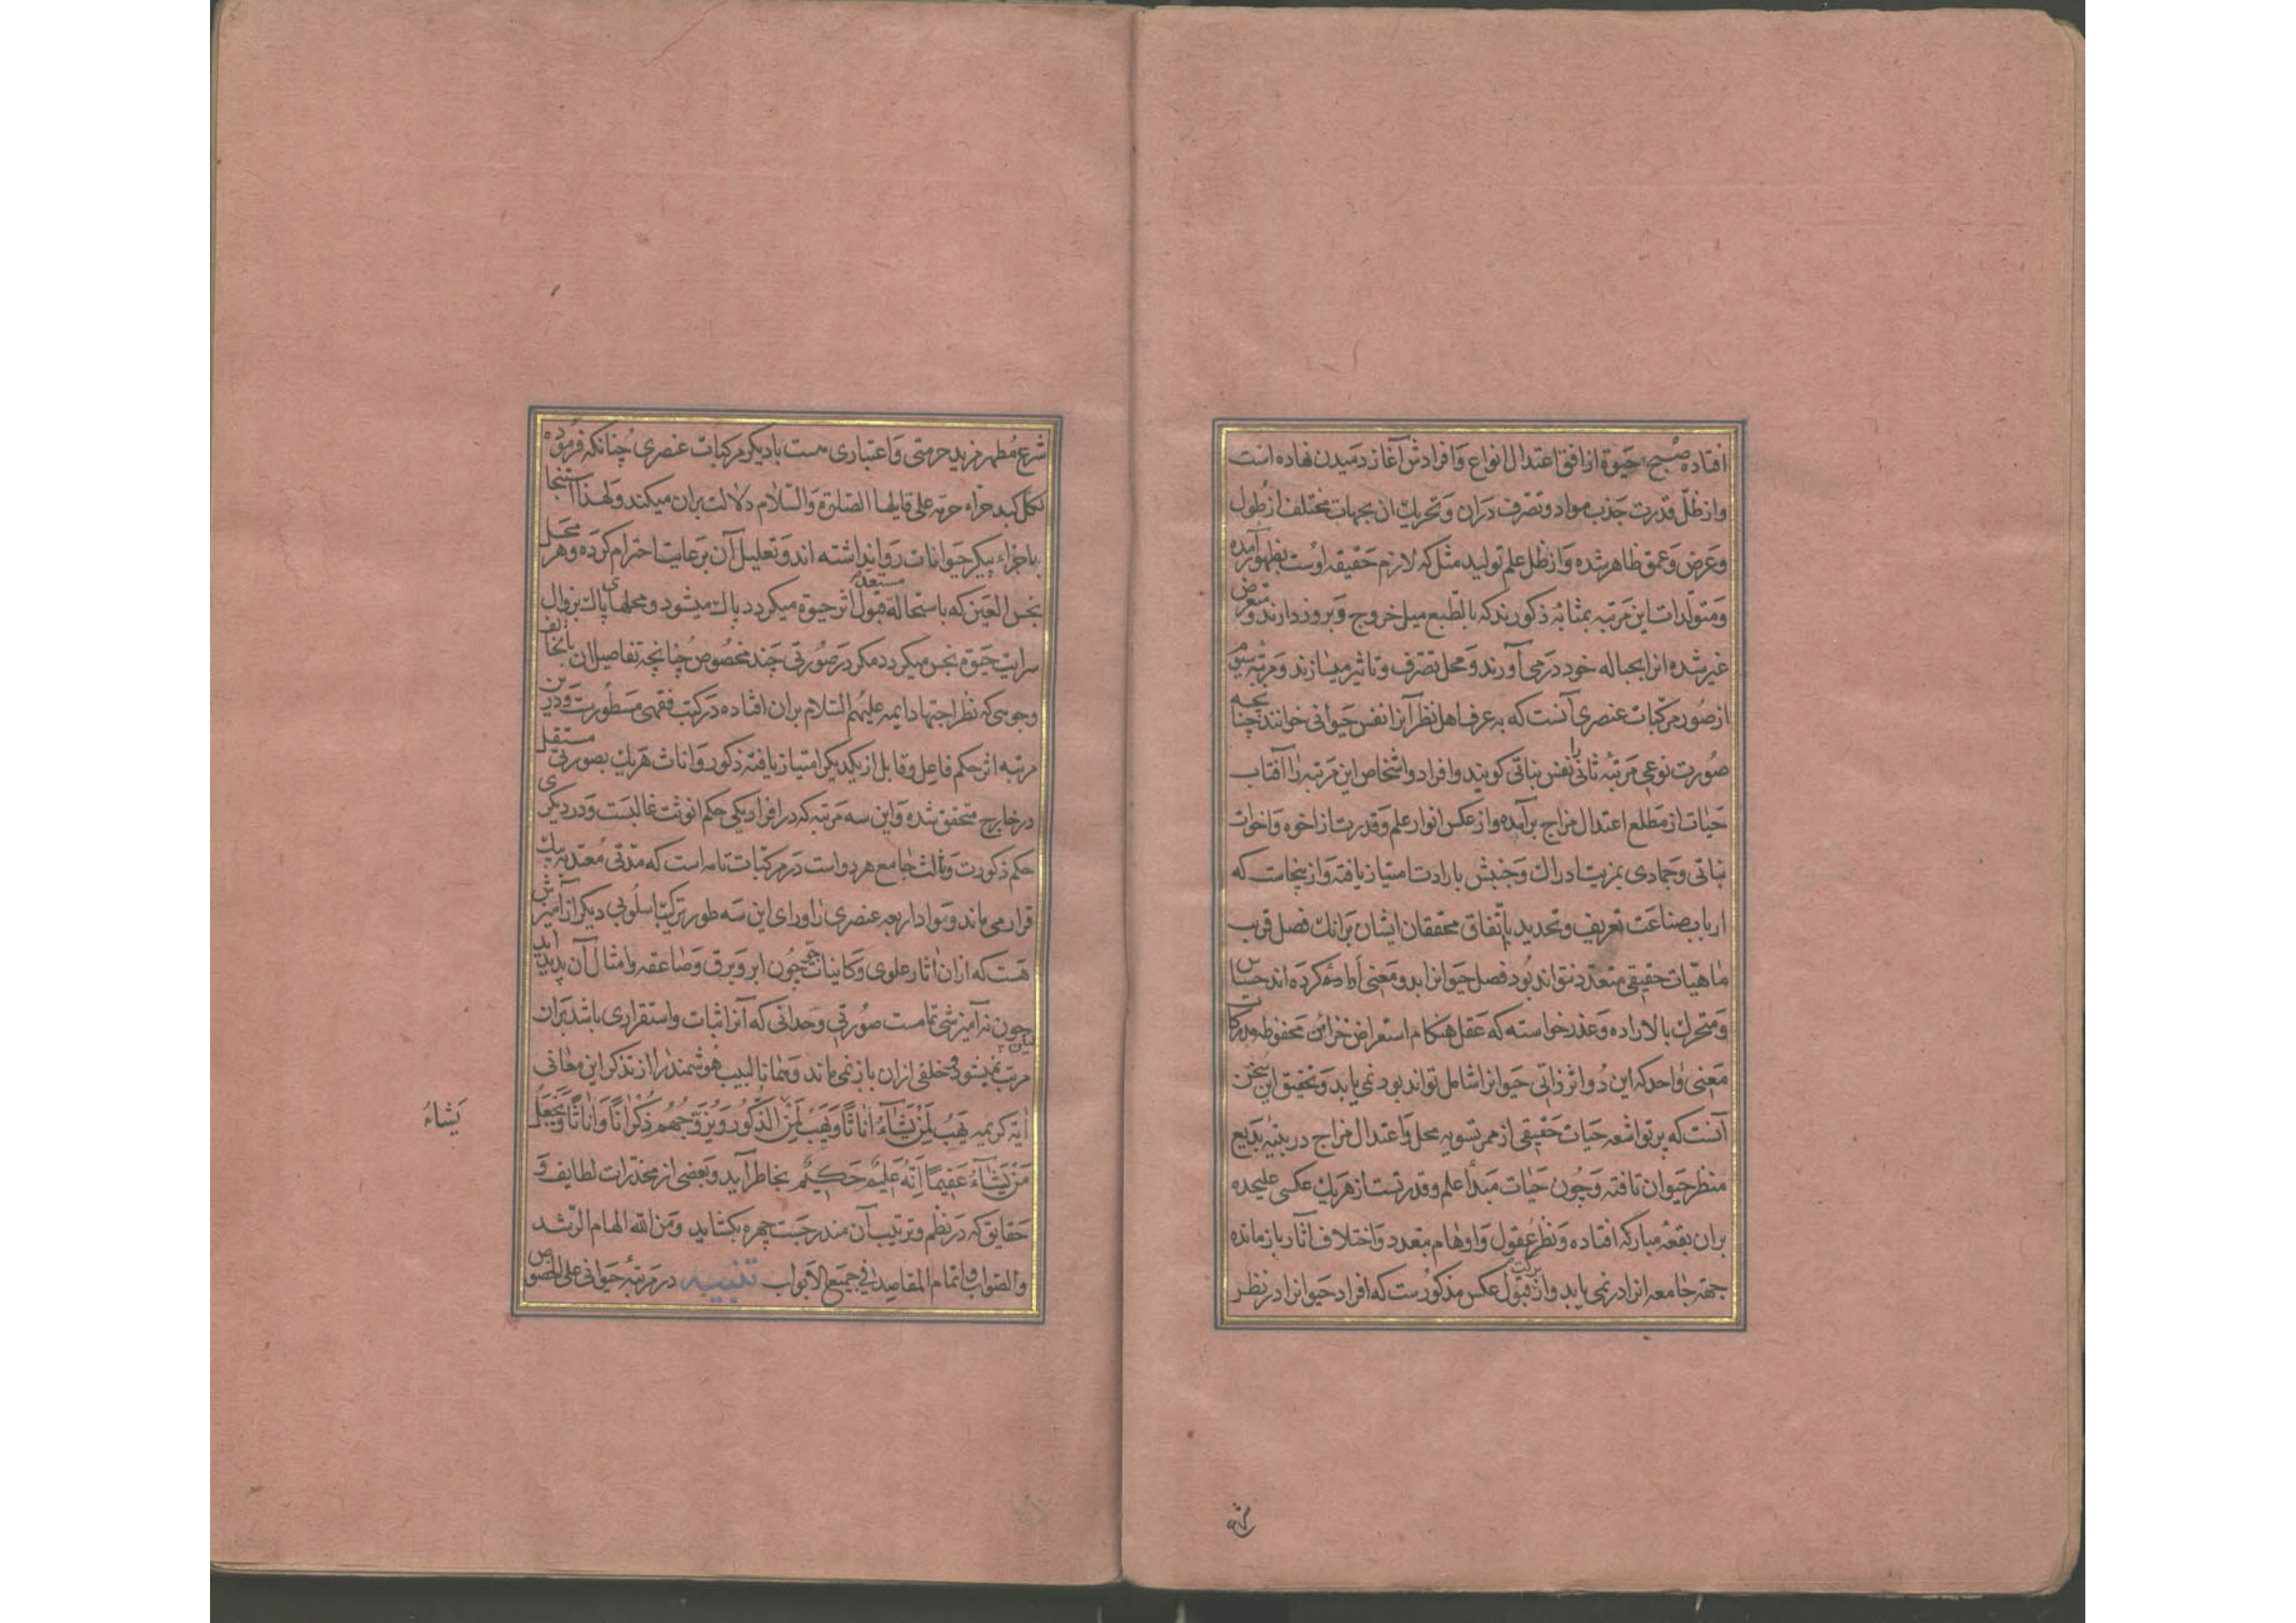 افتاده صبح حیوة از افق اعتدال انواع وافرادش آغاز دمیدن نهاده است
واز ظلّ قدرت جذب مواد وتصرف دران وتحریك ان بجهات مختلف از طول
وعرض وعمق ظاهر شده واز ظل علم تولید مثل که لازم حقیقه اوست بظهور آمده
ومتولّدات این مرتبه بمثابه ذکورند که بالطبع میل خروج وبروز دارند و متعرض
غیر شده انرا بحباله خود درمی آورند ومحل تصرف وتاثیر میسازند ومرتبه سیوم
از صور مرکبات عنصری آنست که به عرف اهل نظر آنرا نفس حیوانی خوانند چنانچه
صورت نوعی مرتبه ثانی را نفس نباتی کویند وافراد واشخاص این مرتبه را آفتاب
حیات از مطلع اعتدال مزاج برآمده واز عکس انوار علم وقدرت از اخوه واخوات
نباتی وجمادی بمزیت ادراك وجنبش بارادت امتیاز یافته واز ینجاست که
ارباب صناعت تعریف وتحدید باتّفاق محققان ایشان برانك فصل قریب
ماهیّات حقیقی متعدد نتواند بود فصل حیوانرا بدو معنی اداده کرده اند حساس
ومتحرك بالاراده وعذر خواسته که عقل هنکام استعراض خزاین محفوظه مدرکات
معنی واحد که این دو اثر ذاتی حیوانرا شامل تواند بود نمی یابد وتحقیق این سخن
آنست که پرتو اشعه حیات حقیقی از ممر تسویه محل واعتدال مزاج در بنیه بدیع
منظر حیوان تافته وچون حیات مبدأ علم وقدرتست از هریك عکسی علیحده
بران بقعه مبارکه افتاده ونظر عقول واوهام متعدد واختلاف آثار باز مانده
جهته جامعه انرا در نمی یابد واز برکت قبول عکس مذکورست که افراد حیوانرا در نظر
شرع
شرع مطهر مزید حرمتی واعتباری هست بادیکر مرکبات عنصری چنانکه فرموده
لکل کبد حراء حرمة علی قایلها الصلوة والسلام دلالت بران میکند ولهذا استنجا
باجزاء پیکر حیوانات روا نداشته اند وتعلیل آن برعایت احترام کرده وهر محل
نجس العین که باستحاله مستعد قبول اثر حیوة میکردد پاك میشود ومحلهای پاك بزوال
سرایت حیوة نجس میکردد مکر در صورتی چند مخصوص چنانچه تفاصیل ان بانحا
وجوهی که نظر اجتهاد ایمه علیهم السلام بران افتاده در کتب فقهی مسطورست ودرین
مرتبه اثر حکم فاعل وقابل از یکدیکر امتیاز یافته ذکور واناث هریك بصورتی مستقل
در خارج متحقق شده واین سه مرتبه که در افراد یکی حکم انوثت غالبست ودر دیکری
حکم ذکورت وثالث جامع هر دو است در مرکبات تامه است که مدتی معتد به بیك
قرار می ماند ومواد اربعه عنصری را ورای این سه طور ترکیب اسلوبی دیکر از آمیزش
هست که ازان اثار علوی وکاینات جو چون ابر وبرق وصاعقه وامثال آن پدید اید
چون نه آمیزشی تمامست صورتی وحدانی که آنرا ثبات واستقراری باشد بران
مرتب نمیشود وخلفی ازان باز نمی ماند وهمانا لبیب هوشمند را از تذکر این معانی
ایه کریمه یهب لمن یشآء اناثا ویهب لمن الذّکور او یزوجهم ذکرانا واناثا ویجعل
یشاءُ
من یشآء عقیما انه علیم حکیم بخاطر آید وبعضی از مخدرات لطایف و
حقایق که در نظم وترتیب آن مندرجست چهره بکشاید ومن الله الهام الرشد
والصواب واتمام المقاصد فی جمیع الابواب تنبیه در مرتبه حیوانی علی الخصوص